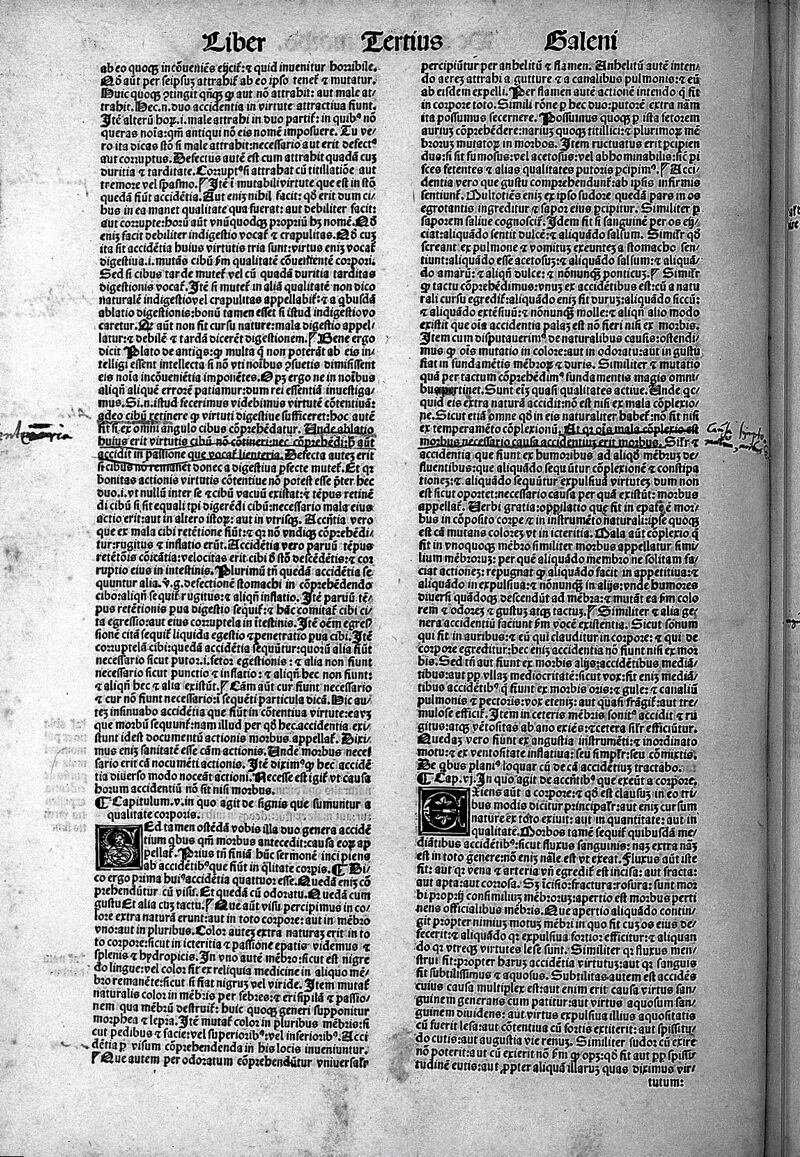 Liber Tertius Galeni
ab eo quoqꝫ incõueniẽs eijcit᷑: ⁊ quid inuenitur horribile.
Nõ aũt per seipsuꝫ attrahit᷑ ab eo ipso tenet᷑ ⁊ mutatur.
trahit. Hec.n. duo accidentia in virtute attractiua fiunt.
queras noĩa: qm̃ antiqui nõ eis nomẽ imposuere. Tu ve
ro ita dicas st̃o si male attrahit: necessario aut erit defectꝰ
aut corruptus. Defectus autẽ est cum attrahit quadã cuꝫ
duritia ⁊ tarditate. Corruptꝰ si attrahat cũ titillatiõe aut
tremore vel spasmo. Itẽ ĩ mutabili virtute que est in st̃o
quedã fiũt accidẽtia. Aut eniꝫ nihil facit: q̃ erit dum ci
bus in ea manet qualitate qua fuerat: aut debiliter facit:
aut corrupte: horũ aũt vnũquodqꝫ propriũ hꝫ nomẽ. Nõ
eniꝫ facit debiliter indigestio vocat᷑ ⁊ crapulitas. Qõ cuꝫ
ita sit accidẽtia huius virtutis tria sunt: virtus eniꝫ vocat᷑
digestiua.i. mutãs cibũ ẜm qualitatẽ cõuenientẽ corpori.
Sed si cibus tarde mutet᷑ vel cũ quadã duritia tarditas
digestionis vocat᷑. Itẽ si mutet᷑ in aliã qualitatẽ non dico
naturalẽ indigestio vel crapulitas appellabit᷑: ⁊ a q̃busdã
ablatio digestionis: bonũ tamen esset si istud indigestiõ vo
caretur. Aꝫ aũt non sit cursu nature: mala digestio appel
latur: ⁊ debilẽ ⁊ tardã dicerẽt digestionem. Bene ergo
dicit Plato de antiqs: ꝙ multa q̃ non poterãt ab eis in
telligi essent intellecta si nõ vti noĩbus ꝯsuetis dimisissent
eis noĩa incõueniẽtia imponẽtes. Opꝫ ergo ne in noĩbus
aliqñ aliquẽ errorẽ patiamur: dum rei essentiã inuestiga
mus. Si.n. istud fecerimus videbimus virtutẽ cõtentiuã
adeo cibũ retinere ꝙ virtuti digestiue sufficeret: hoc autẽ
sit si ex omni angulo cibus cõprehẽdatur. Unde ablatio
huius erit virtutis cibũ nõ cõtineri: nec cõprehẽdi: ꝙ aũt
accidit in passione que vocat᷑ lienteria. Defecta autẽ erit
si cibus nõ remanet donec a digestiua ꝑfecte mutet᷑. Et qꝛ
bonitas actionis virtutis cõtentiue nõ potest esse p̃ter hec
duo.i. vt nullũ inter se ⁊ cibũ vacuũ existat: ⁊ tẽpus retinẽ
di cibũ si sit equali tp̃i digerẽdi cibũ: necessario mala eius
actio erit: aut in altero istoꝝ: aut in vtrisqꝫ. Accñtia vero
que ex mala cibi retẽtione fiũt: ⁊ qꝛ nõ vndiqꝫ cõprehẽdi
tur: rugitus ⁊ inflatio erũt. Accidẽtia vero paruũ tẽpus
retẽtõis cõicãtia: velocitas erit cibi ð st̃o descẽdẽtis: ⁊ cor
ruptio eius in intestinis. Plurimũ tñ quedã accidẽtia se
quuntur alia. v̾.g. desectionẽ stomachi in cõprehẽdendo
cibo: aliqñ sequit᷑ rugitus: ⁊ aliqñ inflatio. Itẽ paruũ tẽ
pus retẽtionis pua digestio sequit᷑: ⁊ hãc comitat᷑ cibi ci
ta egressio: aut eius corruptela in ĩtestinis. Itẽ oẽm egres
sionẽ citã sequit᷑ liquida egestio ⁊ penetratio pua cibi. Itẽ
corruptelã cibi: quedã accidẽtia sequũtur: quorũ alia fiũt
necessario sicut putor.i. fetor egestionis: ⁊ alia non fiunt
necessario sicut punctio ⁊ inflatio: ⁊ aliqñ hec non fiunt:
⁊ aliqñ hec ⁊ alia existũt. Cãm aũt cur fiunt necessario
⁊ cur nõ fiunt necessario: ĩ sequẽti particula dicã. Hic au
tez insinuabo accidẽtia que fiũt in cõtentiua virtute: eaqꝫ
que morbũ sequunt᷑. nam illud per q̃ð hec accidentia exi
stunt idest documentũ actionis morbus appellat᷑. Dixi
mus eniꝫ sanitatẽ esse cãm actionis. Unde morbus neces
sario erit cã nocumẽti actionis. Itẽ diximꝰ ꝙ hec accidẽ
tia diuerso modo noceãt actioni. Necesse est igit᷑ vt causa
horum accidentiũ nõ sit nisi morbus.
¶ Capitulum.v. in quo agit de signis que sumuntur a
qualitate corporis.
SEd tamen ostẽdã vobis illa duo genera accidẽ
tium q̃bus qm̃ morbus antecedit: causa eoꝝ ap
pellat᷑. Prius tñ finiã hũc sermonẽ incipiens
ab accidẽtibꝰ que fiũt in q̃litate corpis. Di
co ergo prima huiꝰ accidẽtia quattuor esse. Quedã eniꝫ cõ
prehẽduntur cũ visu. Et quedã cũ odoratu. Quedã cum
gustu Et alia cuꝫ tactu. Que aũt visu percipimus in co
lore extra naturã erunt: aut in toto corpore: aut in mẽbro
vno: aut in pluribus. Color autẽ extra naturaꝫ erit in to
to corpore: sicut in icteritia ⁊ passione epatis videmus ⁊
splenis ⁊ hydropicis. In vno autẽ mẽbro: sicut est nigre
do lingue: vel color sit ex reliquia medicine in aliquo mẽ
bro remanẽte: sicut si fiat nigruꝫ vel viride. Item mutat᷑
naturalis color in mẽbris per febres: ⁊ erisipilã ⁊ passio
nem qua mẽbrũ destruit᷑: huic quoqꝫ generi supponitur
morphea ⁊ lepra. Itẽ mutat᷑ color in pluribus mẽbris: si
cut pedibus ⁊ facie: vel superioribꝰ: vel inferioribꝰ. Acci
dẽtia p̱ visum cõprehendenda in his locis inueniuntur.
Que autem per odoratum cõprehendũtur vniuersalr̃
percipiũtur per anhelitũ ⁊ flamen. Anhelitũ autẽ inten
do aerẽ attrahi a gutture ⁊ a canalibus pulmonis: ⁊ eũ
ab eisdem expelli. Per flamen autẽ actionẽ intendo q̃ fit
in corpore toto. Simili rõne p̱ hec duo: putorẽ extra nãm
ita possumus secernere. Possumus quoqꝫ p̱ ista fetorem
aurium cõprehẽdere: narius quoqꝫ titillici: ⁊ plurimoꝝ mẽ
broruꝫ mutatoꝝ in morbos. Item ructuatus erit p̱cipien
dus: si sit fumosus: vel acetosus: vel abhominabilis: sic̃ pi
sces fetentes ⁊ alias qualitates putoris p̱cipimꝰ. Acci
dentia vero que gustu comprehendunt᷑ ab ipsis infirmis
sentiunt᷑. Multotiẽs eniꝫ ex ipso sudore quedã pars in os
egrotantis ingreditur ⁊ sapor eius p̱cipitur. Similiter p̱
saporem saliue cognoscit᷑. Idem sit si sanguinẽ per os eij
ciat: aliquãdo sentit dulcẽ: ⁊ aliquãdo salsum. Similr̃ q̃ð
screant ex pulmone ⁊ vomitus exeuntes a stomacho sen
tiunt: aliquãdo esse acetosuꝫ: ⁊ aliquãdo salsum: ⁊ aliquã
do amarũ: ⁊ aliqñ dulce: ⁊ nõnunqꝫ ponticuꝫ. Similr̃
ꝙ tactu cõprehẽdimus: vnuꝫ ex accidẽtibus est: cũ a natu
rali cursu egredit᷑: aliquãdo eniꝫ fit duruꝫ: aliquãdo siccũ:
⁊ aliquãdo extẽsiuũ: ⁊ nõnunqꝫ molle: ⁊ aliqñ alio modo
existit que oĩa accidentia palaꝫ est nõ fieri nisi ex morbis.
Item cum disputauerimꝰ de naturalibus causis: ostendi
mus ꝙ oĩs mutatio in colore: aut in odoratu: aut in gustu
fiat in fundamẽtis mẽbroꝝ ⁊ duris. Similiter ⁊ mutatio
quã per tactum cõprehẽdimꝰ fundamentis magis omni
bus pertinet. Sunt eiꝫ quasi qualitates actiue. Unde qc̃
quid eis extra naturã accidit: nõ fit nisi ex mala cõplexio
ne. Sicut etiã omne q̃ð in eis naturaliter habet᷑: nõ fit nisi
ex temperamẽto cõplexionũ. At qꝛ oĩs mala cõplexio est
morbus necessario causa accidentiuꝫ erit morbus. Silr̃ ⁊
accidentia que fiunt ex humoribus ad aliq̃ mẽbruꝫ de
fluentibus: que aliquãdo sequũtur cõplexionẽ ⁊ constipa
tiõeꝫ: ⁊ aliquãdo sequũtur expulsiuã virtuteꝫ dum non
est sicut oportet: necessario causa per quã existũt: morbus
appellat᷑. Verbi gratia: oppilatio que fit in epate est mor
bus in cõposito corpe ⁊ in instrumẽto naturali: ipse quoqꝫ
est cã mutans colorẽ: vt in icteritia. Mala aũt cõplexio q̃
fit in vnoquoqꝫ mẽbro similiter morbus appellatur simi
lium mẽbroruꝫ: per que aliquãdo membro ne solitam fa
ciat actionẽ: repugnat ꝙ aliquãdo facit in appetitiua: ⁊
aliquãdo in expulsiua ⁊ nõnunqꝫ in alijs: vnde humores
diuersi quãdoqꝫ descendũt ad mẽbra: ⁊ mutãt ea ẜm colo
rem ⁊ odoreꝫ ⁊ gustuꝫ atqꝫ tactus. Similiter ⁊ alia ge
nera accidentiũ faciunt ẜm vocẽ existentia. Sicut sonum
qui fit in auribus: ⁊ eũ qui clauditur in corpore: ⁊ qui de
corpore egreditur: hec eniꝫ accidentia nõ fiunt nisi ex mor
bis. Sed tñ aut fiunt ex morbis alijs: accidẽtibus mediã
tibus: aut p̱p vllaꝫ mediocritatẽ: sicut vox: fit eniꝫ mediã
tibus accidẽtibꝰ q̃ fiunt ex morbis oris: ⁊ gule: ⁊ canaliũ
pulmonis ⁊ pectoris: vox eteniꝫ: aut quasi frãgit᷑: aut tre
mulose efficit᷑. Item in ceteris mẽbris sonitꝰ accidit ⁊ ru
gitus: atqꝫ vẽtositas ab ano exiẽs: ⁊ cetera silr̃ efficiũtur.
Quedaꝫ vero fiunt ex angustia instrumẽti: ⁊ inordinato
motu: ⁊ ex ventositate inflatiua: seu simplr̃: seu cõmixtis.
De q̃bus planiꝰ loquar cũ de cã accidẽtiuꝫ tractabo.
¶ Cap.vj. In quo agit de accñtibꝰ que exeũt a corpore.
EXiens aũt a corpore: ⁊ q̃ð est clausuꝫ in eo tri
bus modis dicitur principalr̃: aut eniꝫ cursum
nature ex toto exiuit: aut in quantitate: aut in
qualitate. Morbos tamẽ sequit᷑ quibusdã me
diãtibus accidẽtibꝰ: sicut fluxus sanguinis: naꝫ extra naꝫ
est in toto genere: nõ eniꝫ nãle est vt exeat. Fluxus aũt iste
fit: aut qꝛ vena ⁊ arteria vñ egredit᷑ est incisa: aut fracta:
aut apta: aut corrosa. Sꝫ ĩcisio: fractura: rosura: sunt mor
bi proprij consimilius mẽbroruꝫ: apertio est morbus perti
nens officialibus mẽbris. Que apertio aliquãdo contin
git propter nimius motuꝫ mẽbri in quo fit cuꝫ os eius de
fecerit: ⁊ aliquãdo qꝛ expulsiua fortior efficitur: ⁊ aliquan
do qꝛ vtreqꝫ virtutes lese sunt. Similiter qꝛ fluxus men
strui fit: propter haruꝫ accidẽtia virtutuꝫ: aut qꝛ sanguis
fit subtilissimus ⁊ aquosus. Subtilitas autem est accidẽs
cuius causa multiplex est: aut enim erit causa virtus san
guinem generans cum patitur: aut virtus aquosum san
guinem diuidens: aut virtus expulsiua illius aquositatis
cũ fuerit lesa: aut cõtentiua cũ fortis extiterit: aut spissitu
do cutis: aut augustia vie renuꝫ. Similiter sudor cũ exire
nõ poterit: aut cũ exierit nõ ẜm ꝙ opꝫ: q̃ð fit aut pp̱ spissi
tudinẽ cutis: aut ꝓpter aliquã illaruꝫ quas diximus vir
tutum: